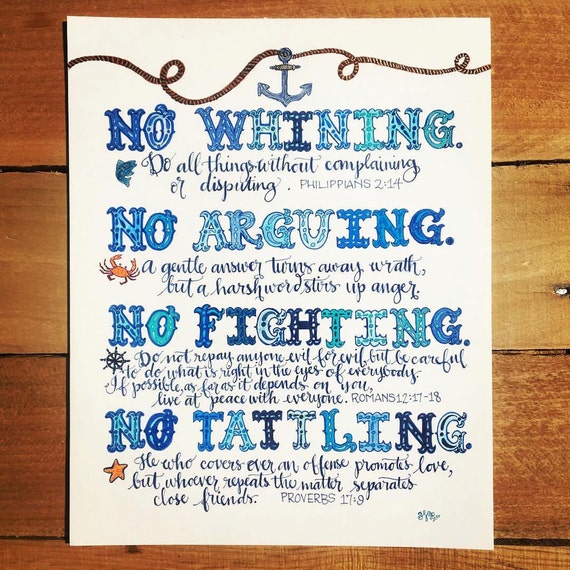 NO WHINING.
Do all things without complaining
or disputing. PHILIPPIANS 2:14
NO ARGUING.
A gentle answer turns away wrath,
but a harsh word stirs up anger
NO FIGHTING.
Do not repay anyone evil for evil, but be careful
to do what is right in the eyes of everybody.
If possible, as far as it depends on you,
live at peace with everyone. ROMANS 12:17-18
NO TATTLING.
He who covers over an offense promotes love,
but whoever repeats the matter separates
close friends. PROVERBS 17:9